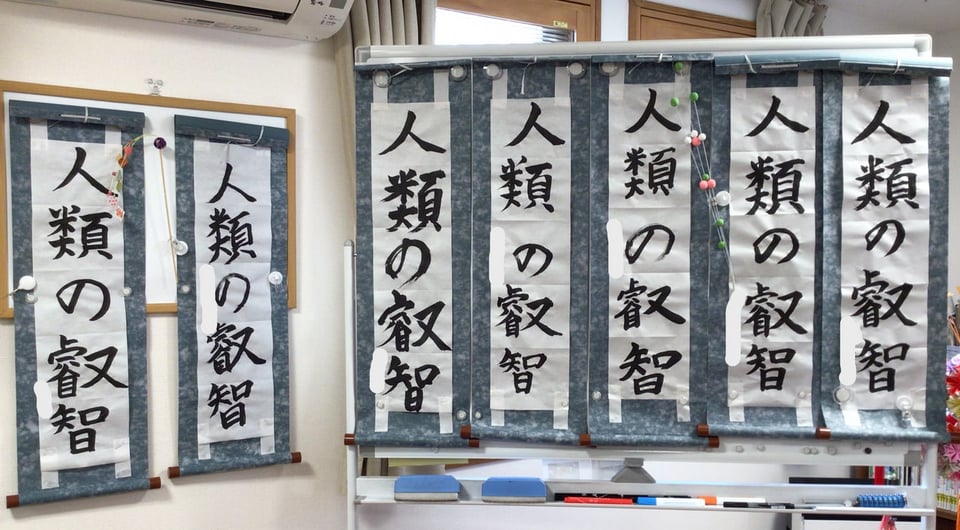 人類の叡智
人類の叡智
人類の叡智
人類の叡智
人類の叡智
人類の叡智
人類の叡智